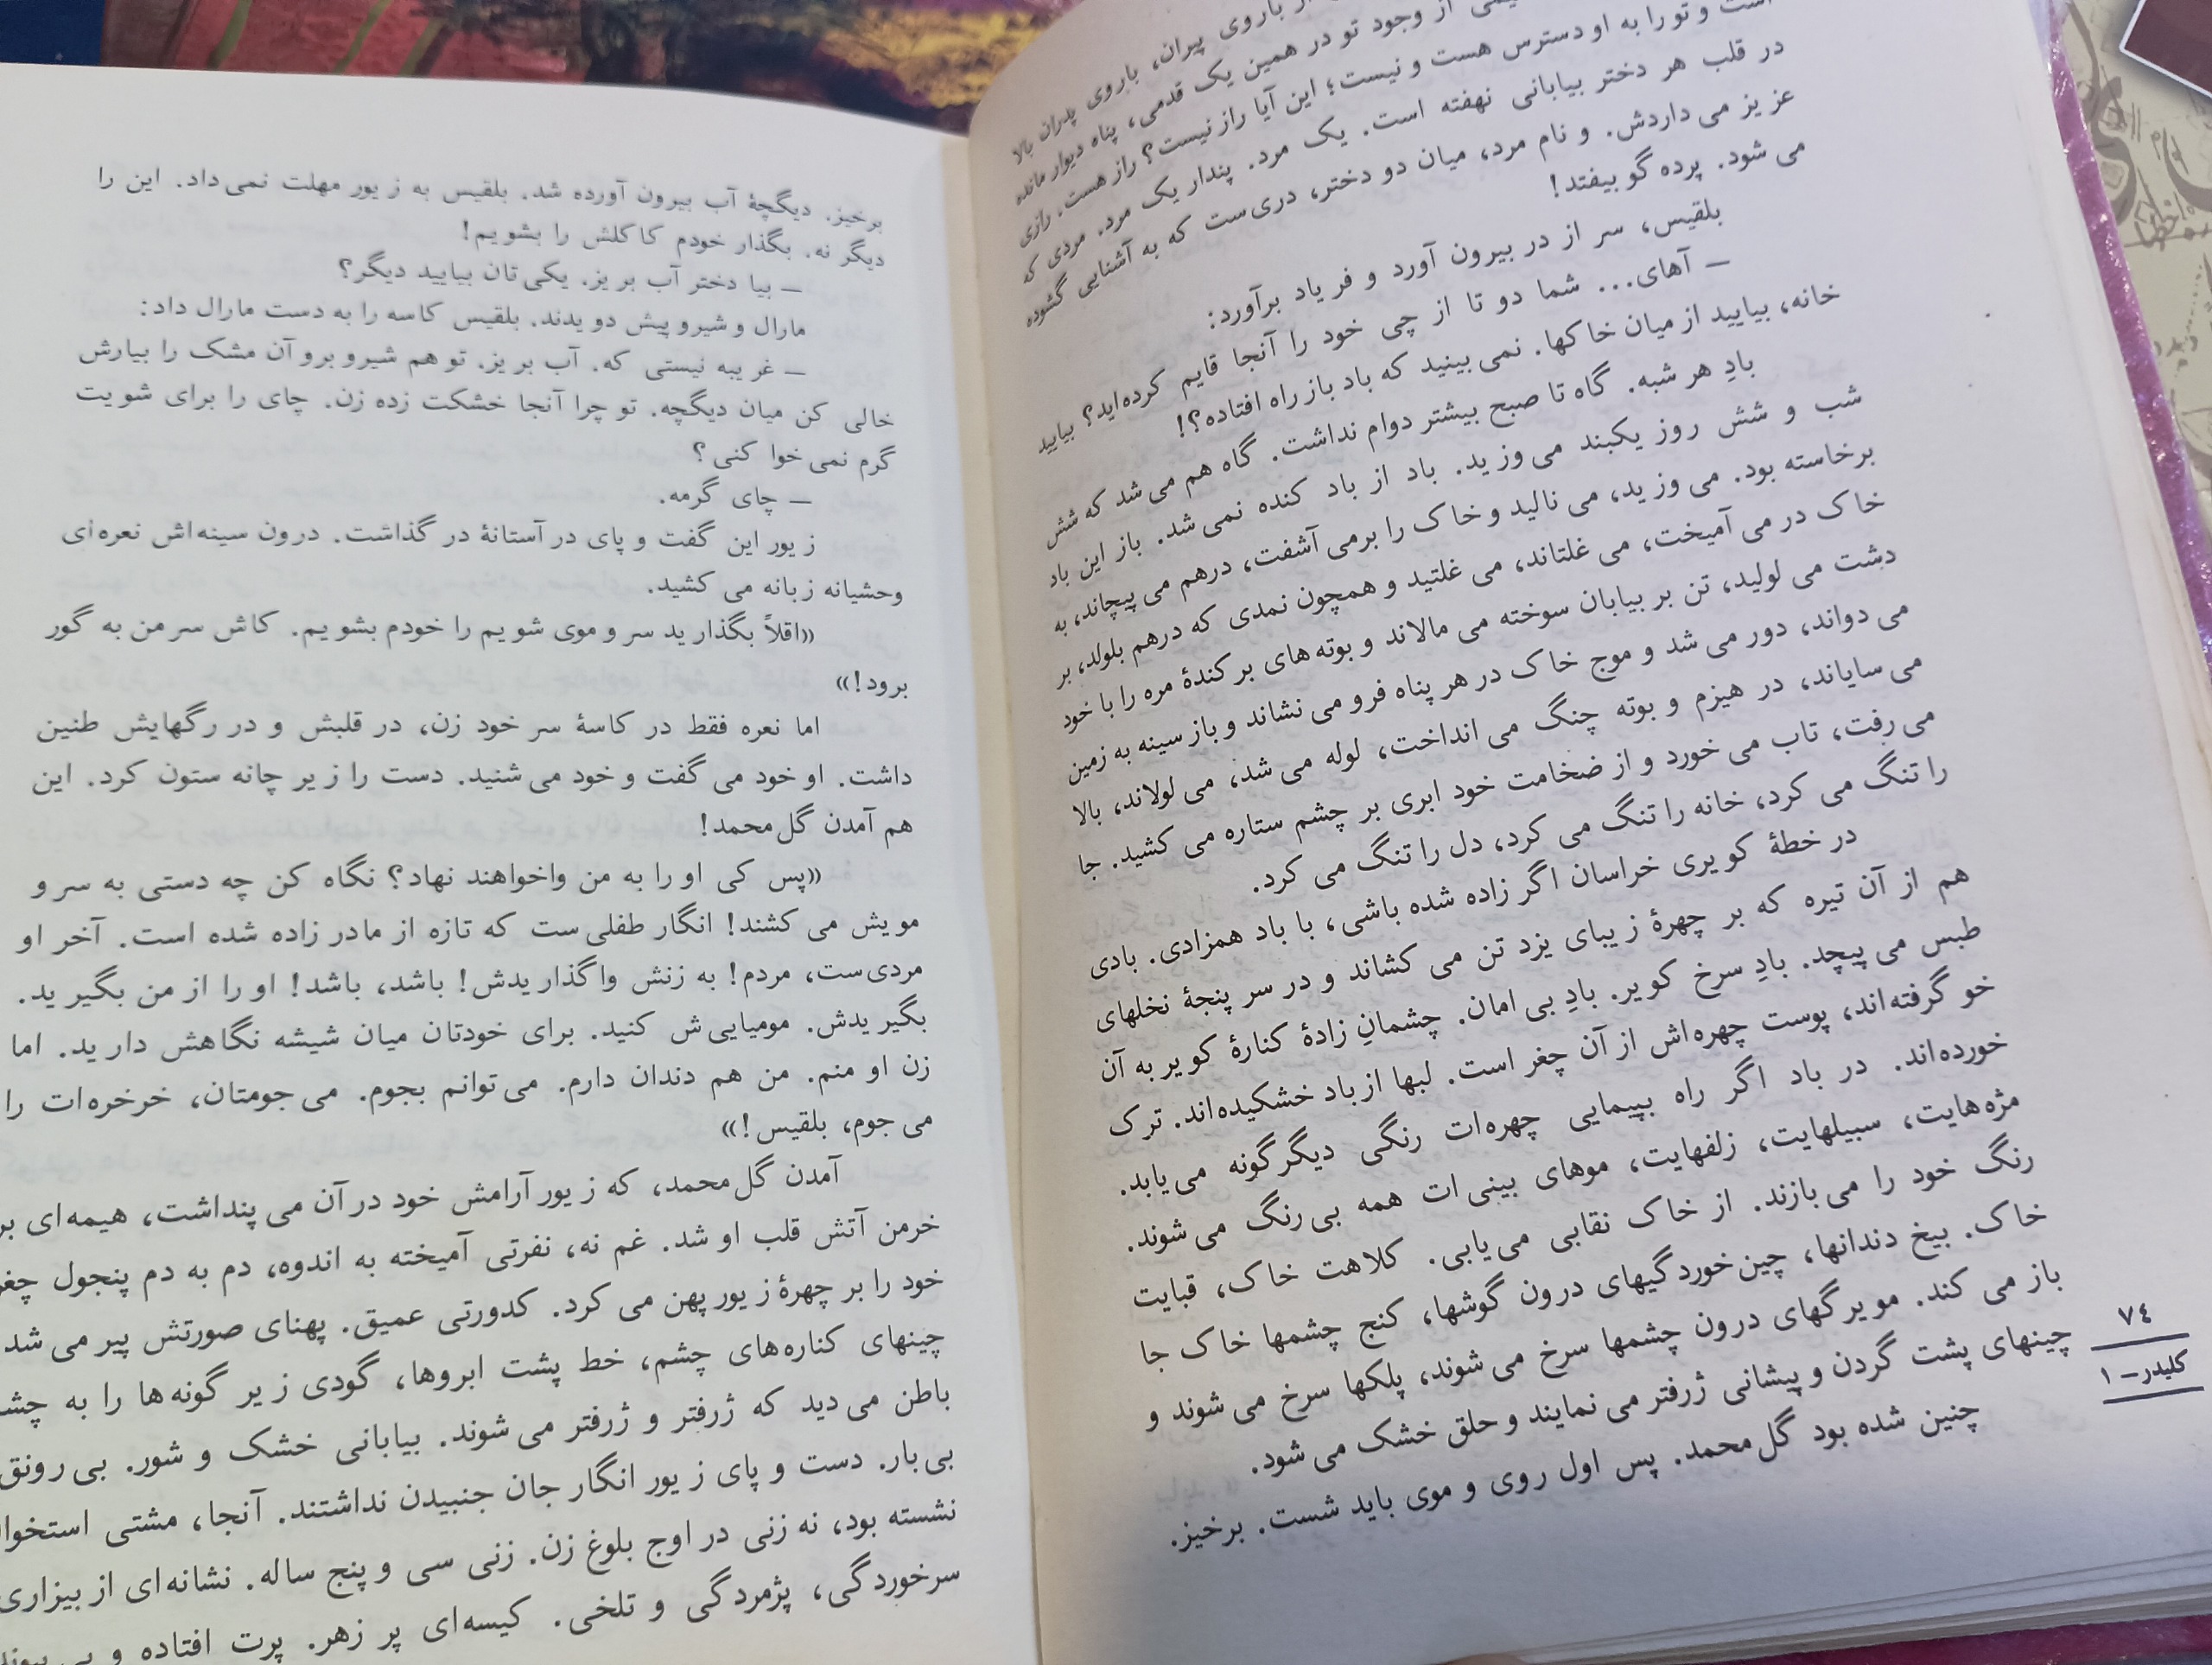 باروی پیران، باروی پدران بالا
از وجود تو در همین یک قدمی، پناه دیوار مانده
است و تو را به او دسترس هست و نیست؛ این آیا راز نیست؟ راز هست. رازی
در قلب هر دختر بیابانی نهفته است. یک مرد. پندار یک مرد. مردی که
عزیز می داردش. و نام مرد، میان دو دختر، دری ست که به آشنایی گشوده
می شود. پرده گو بیفتد!
بلقیس، سر از در بیرون آورد و فریاد برآورد:
— آهای... شما دو تا از چی خود را آنجا قایم کرده اید؟ بیایید
خانه، بیایید از میان خاکها. نمی بینید که باد باز راه افتاده؟!
بادِ هر شبه. گاه تا صبح بیشتر دوام نداشت. گاه هم می شد که شش
شب و شش روز یکبند می وزید. باد از باد کنده نمی شد. باز این باد
برخاسته بود. می وزید، می نالید و خاک را برمی آشفت، درهم می پیچاند، به
خاک در می آمیخت، می غلتاند، می غلتید و همچون نمدی که درهم بلولد، بر
دشت می لولید، تن بر بیابان سوخته می مالاند و بوته های برکندهٔ مره را با خود
می دواند، دور می شد و موج خاک در هر پناه فرو می نشاند و باز سینه به زمین
می سایاند، در هیزم و بوته چنگ می انداخت، لوله می شد، می لولاند، بالا
می رفت، تاب می خورد و از ضخامت خود ابری بر چشم ستاره می کشید. جا
را تنگ می کرد، خانه را تنگ می کرد، دل را تنگ می کرد.
در خطهٔ کویری خراسان اگر زاده شده باشی، با باد همزادی. بادی
هم از آن تیره که بر چهرهٔ زیبای یزد تن می کشاند و در سر پنجهٔ نخلهای
طبس می پیچد. بادِ سرخ کویر. بادِ بی امان. چشمانِ زادهٔ کنارهٔ کویر به آن
خو گرفته اند، پوست چهره اش از آن چغر است. لبها از باد خشکیده اند. ترک
خورده اند. در باد اگر راه بپیمایی چهره ات رنگی دیگرگونه می یابد.
مژه هایت، سبیلهایت، زلفهایت، موهای بینی ات همه بی رنگ می شوند.
رنگ خود را می بازند. از خاک نقابی می یابی. کلاهت خاک، قبایت
خاک. بیخ دندانها، چین خوردگیهای درون گوشها، کنج چشمها خاک جا
باز می کند. مویرگهای درون چشمها سرخ می شوند، پلکها سرخ می شوند و
چینهای پشت گردن و پیشانی ژرفتر می نمایند و حلق خشک می شود.
چنین شده بود گل محمد. پس اول روی و موی باید شست. برخیز.
٧٤
کلیدر– ١
برخیز. دیگچهٔ آب بیرون آورده شد. بلقیس به زیور مهلت نمی داد. این را
دیگر نه. بگذار خودم کاکلش را بشویم!
— بیا دختر آب بریز. یکی تان بیایید دیگر؟
مارال و شیرو پیش دویدند. بلقیس کاسه را به دست مارال داد:
— غریبه نیستی که. آب بریز. تو هم شیرو برو آن مشک را بیارش
خالی کن میان دیگچه. تو چرا آنجا خشکت زده زن. چای را برای شویت
گرم نمی خوا کنی؟
— چای گرمه.
زیور این گفت و پای در آستانهٔ در گذاشت. درون سینه اش نعره ای
وحشیانه زبانه می کشید.
«اقلاً بگذارید سر و موی شویم را خودم بشویم. کاش سر من به گور
برود!»
اما نعره فقط در کاسهٔ سر خود زن، در قلبش و در رگهایش طنین
داشت. او خود می گفت و خود می شنید. دست را زیر چانه ستون کرد. این
هم آمدن گل محمد!
«پس کی او را به من واخواهند نهاد؟ نگاه کن چه دستی به سر و
مویش می کشند! انگار طفلی ست که تازه از مادر زاده شده است. آخر او
مردی ست، مردم! به زنش واگذاریدش! باشد، باشد! او را از من بگیرید.
بگیریدش. مومیایی ش کنید. برای خودتان میان شیشه نگاهش دارید. اما
زن او منم. من هم دندان دارم. می توانم بجوم. می جومتان، خرخره ات را
می جوم، بلقیس!»
آمدن گل محمد، که زیور آرامش خود در آن می پنداشت، هیمه ای بر
خرمن آتش قلب او شد. غم نه، نفرتی آمیخته به اندوه، دم به دم پنجول چغر
خود را بر چهرهٔ زیور پهن می کرد. کدورتی عمیق. پهنای صورتش پیر می شد
چینهای کناره های چشم، خط پشت ابروها، گودی زیر گونه ها را به
باطن می دید که ژرفتر و ژرفتر می شوند. بیابانی خشک و شور. بی رونق
بی بار. دست و پای زیور انگار جان جنبیدن نداشتند. آنجا، مشتی
نشسته بود، نه زنی در اوج بلوغ زن. زنی سی و پنج ساله. نشانه ای از بیزاری
سرخوردگی، پژمردگی و تلخی. کیسه ای پر زهر. پرت افتاده و